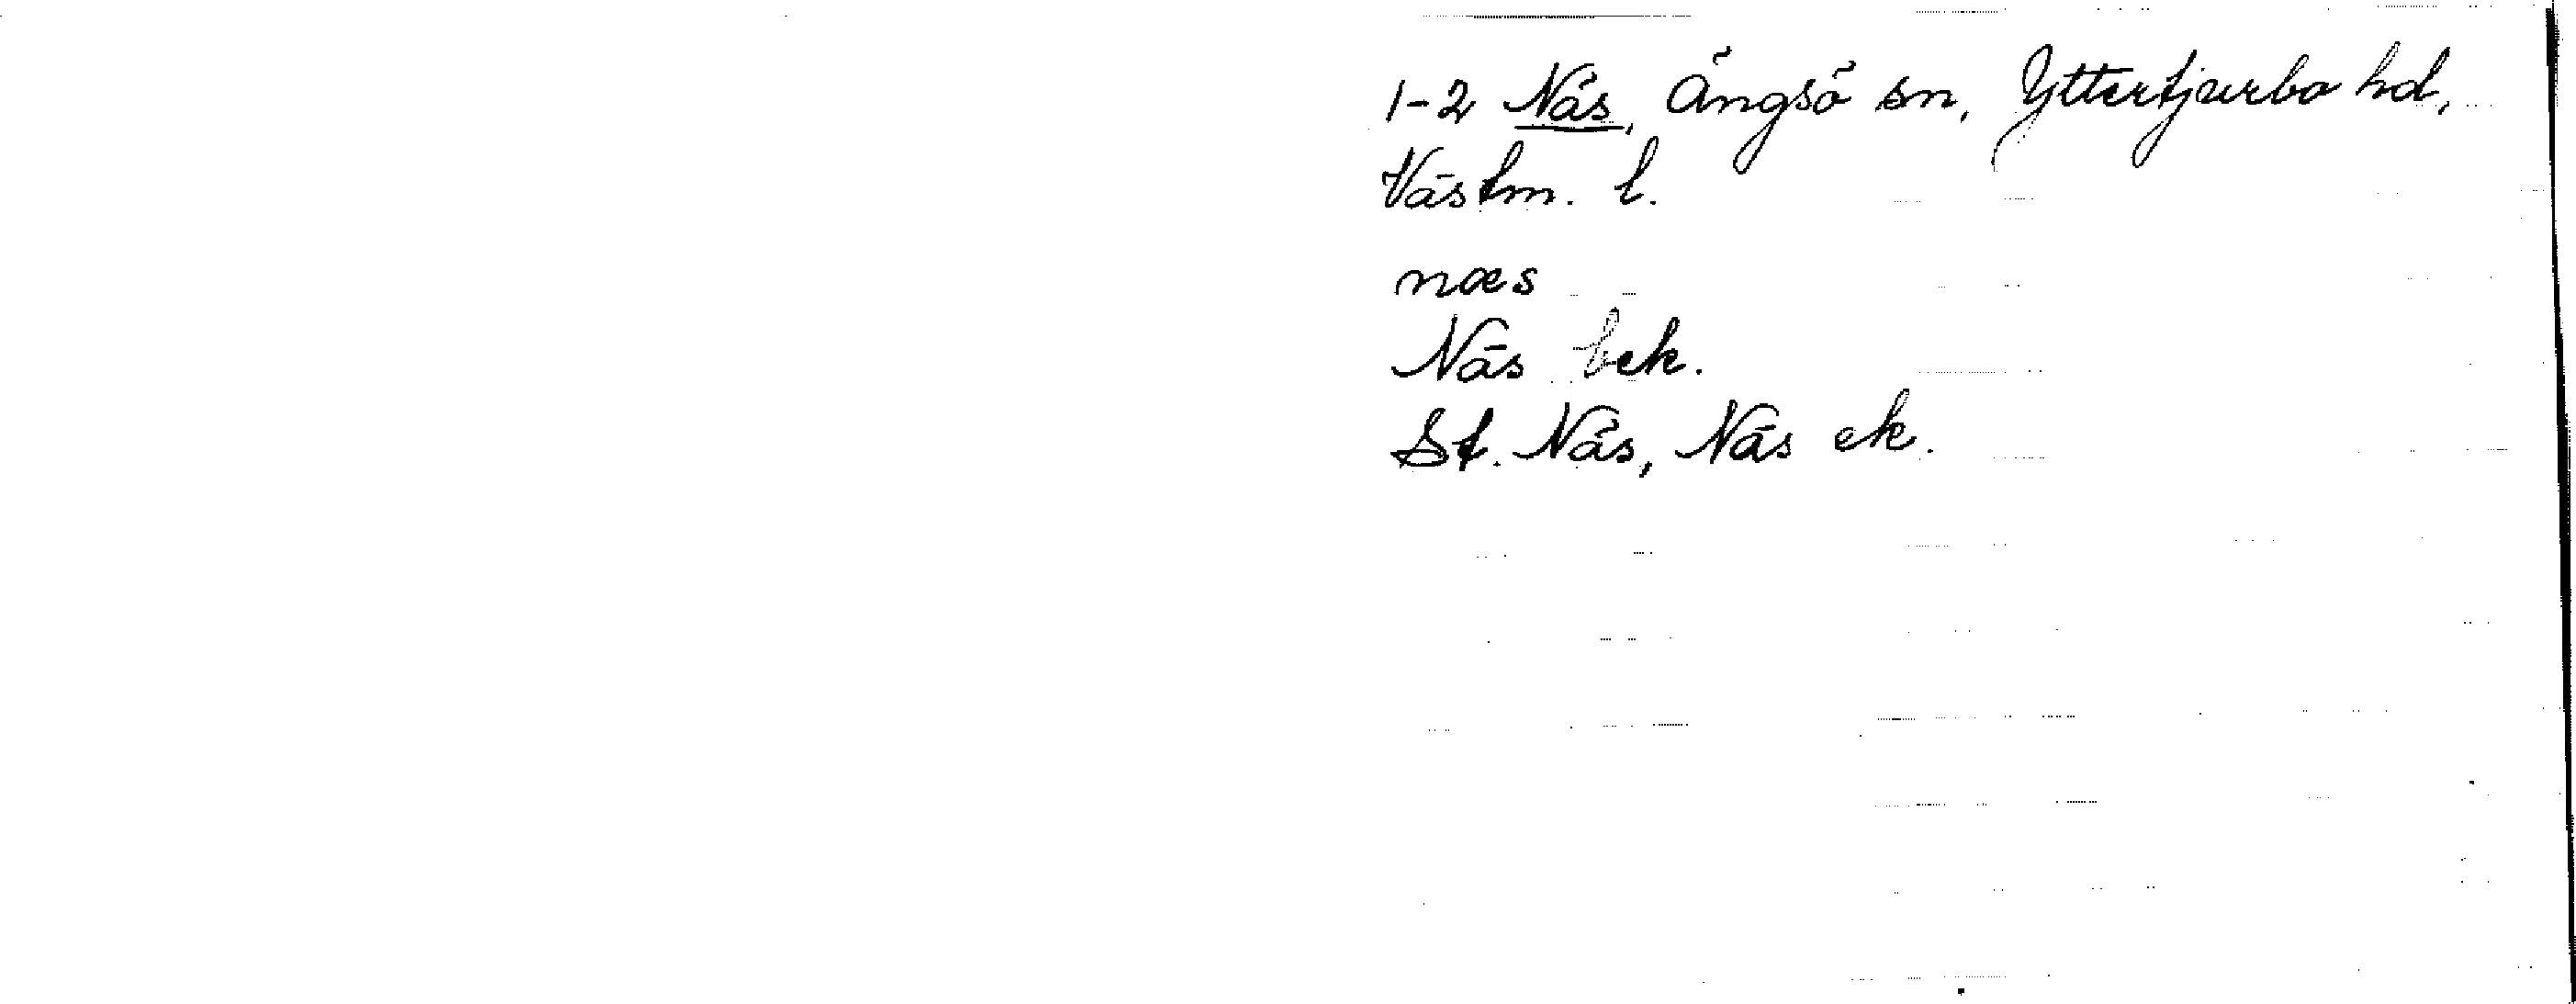 1-2 Näs, Ängsö sn, Yttertjurbo hd,
Västm. l.
næs
Näs bek.
St. Näs, Näs ek.